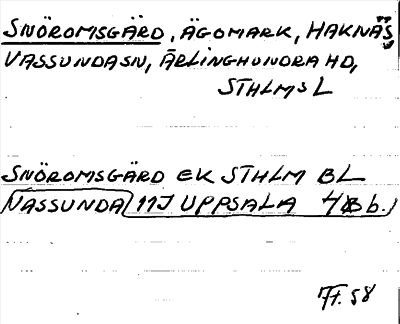 SNÖROMSGÄRD, ÄGOMARK, HAKNÄS
VASSUNDA SN, ÄRLINGHUNDRA HD,
STHLMS L
SNÖROMSGÄRD EK STHLM BL
VASSUNDA 11J UPPSALA 4B b.
58